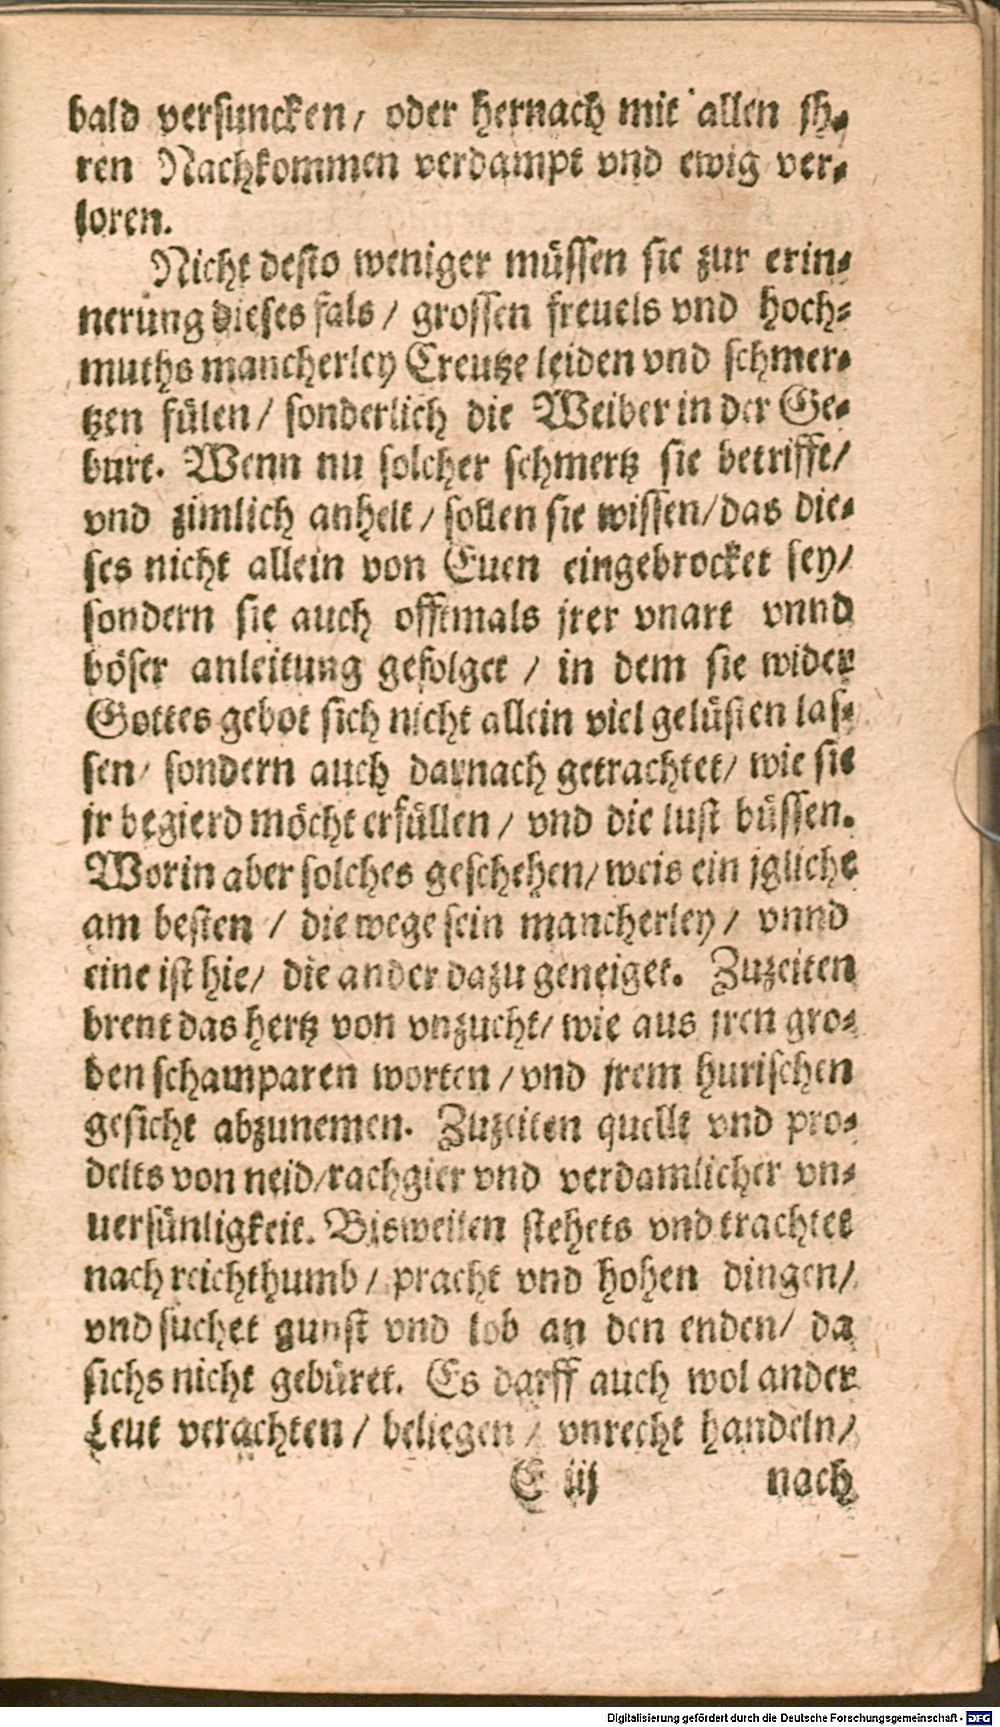 bald versuncken/ oder hernach mit allen jh-
ren Nachkommen verdampt vnd ewig ver-
loren.
Nicht desto weniger müssen sie zur erin-
nerung dieses fals/ grossen freuels vnd hoch-
muths mancherley Creutze leiden vnd schmer-
tzen fülen/ sonderlich die Weiber in der Ge-
burt. Wenn nu solcher schmertz sie betrifft/
vnd zimlich anhelt/ sollen sie wissen/das die-
ses nicht allein von Euen eingebrocket sey/
sondern sie auch offtmals jrer vnart vnnd
böser anleitung gefolget / in dem sie wider
Gottes gebot sich nicht allein viel gelüsten las-
sen/ sondern auch darnach getrachtet/ wie sie
jr begierd möcht erfüllen/ vnd die lust büssen.
Worin aber solches geschehen/ weis ein jgliche
am besten / die wege sein mancherley/ vnnd
eine ist hie/ die ander dazu geneiget. Zuzeiten
brent das hertz von vnzucht/ wie aus jren gro-
ben schamparen worten /vnd jrem hurischen
gesicht abzunemen. Zuzeiten quellt vnd pro-
delts von neid/rachgier vnd verdamlicher vn-
uersünligkeit. Bisweilen stehets vnd trachtet
nach reichthumb/ pracht vnd hohen dingen/
vnd suchet gunst vnd lob an den enden/ da
sichs nicht gebüret. Es darff auch wol ander
Leut verachten/ beliegen/ vnrecht handeln/
E iij nach
Digitalisierung gefördert durch die Deutsche Forschungsgemeinschaft - DFG